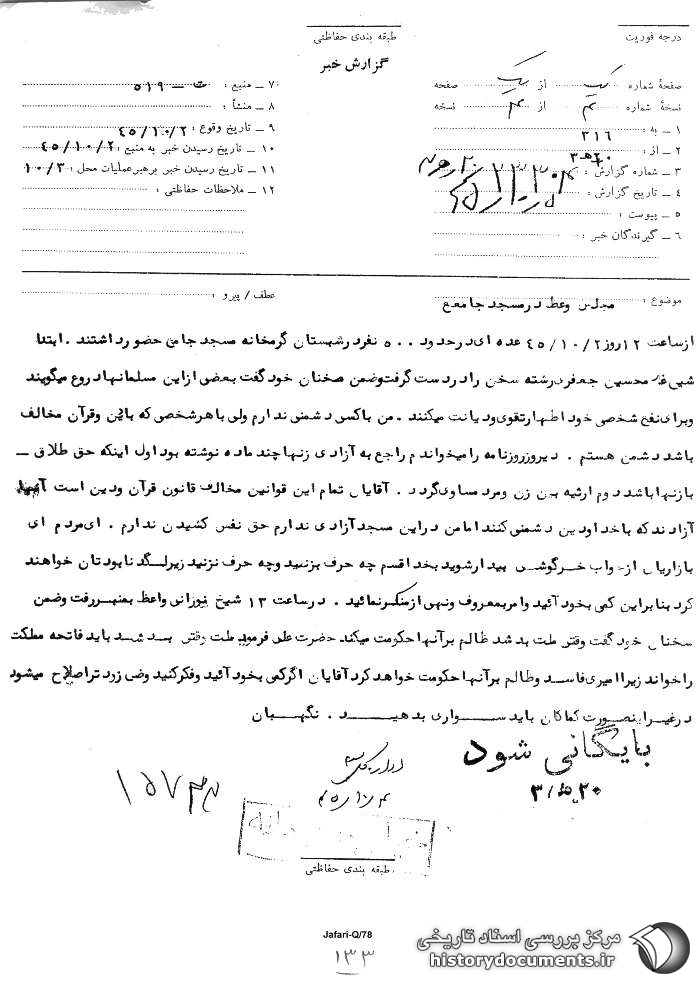 درجه فوریت
طبقه بندی حفاظتی
گزارش خبر
صفحهٔ شماره یک از یک صفحه
نسخهٔ شماره ۲ از ۲ نسخه
۱ ــ به : ۳۱۶
۲ ــ از : ۲۰هـ۳
۳ ــ شماره گزارش :
۴ ــ تاریخ گزارش :
۵ ــ پیوست :
۶ ــ گیرندگان خبر :
۷ ــ منبع : ت ــ ۵۱۹
۸ ــ منشأ :
۹ ــ تاریخ وقوع : ۴۵/۱۰/۲
۱۰ ــ تاریخ رسیدن خبر به منبع : ۴۵/۱۰/۲
۱۱ ــ تاریخ رسیدن خبر برهبرعملیات محل : ۱۰/۳
۱۲ ــ ملاحظات حفاظتی :
موضوع : مجلس وعظ در مسجد جامع
عطف / پیرو :
ازساعت ۱۲ روز ۴۵/۱۰/۲ عده ای درحدود ۵۰۰ نفردرشبستان گرمخانه مسجد جامع حضور داشتند . ابتدا
شیخ غلامحسین جعفری رشته سخن رادردست گرفت وضمن سخنان خود گفت بعضی ازاین مسلمانها دروغ میگویند
وبرای نفع شخصی خود اظهارتقوی ودیانت میکنند . من باکسی دشمنی ندارم ولی باهرشخصی که بادین وقرآن مخالف
باشد دشمن هستم . دیروز روزنامه رامیخواندم راجع به آزادی زنها چند ماده نوشته بود اول اینکه حق طلاق ــ
بازنها باشد دوم ارثیه بین زن ومرد مساوی گردد . آقایان تمام این قوانین مخالف قانون قرآن ودین است آنها
آزادند که باخدا ودین دشمنی کنند اما من دراین مسجد آزادی ندارم حق نفس کشیدن ندارم . ای مردم ای
بازاریان ازخواب خرگوشی بیدارشوید بخدا قسم چه حرف بزنید وچه حرف نزنید زیرلگد نابودتان خواهند
کرد بنابراین کمی بخود آئید وامربمعروف ونهی ازمنکرنمائید . درساعت ۱۳ شیخ نوزانی واعظ بمنبررفت وضمن
سخنان خود گفت وقتی ملت بد شد ظالم برآنها حکومت میکند حضرت علی فرمود ملت وقتی بد شد باید فاتحه مملکت
راخواند زیرا امیری فاسد وظالم برآنها حکومت خواهد کرد آقایان اگرکمی بخود آئید وفکرکنید وضع زودتر اصلاح میشود
درغیراینصورت کماکان باید سواری بدهید . نگهبان
بایگانی شود
۱۵۷
طبقه بندی حفاظتی
Jafari-Q/78
۱۳۳
مرکز بررسی اسناد تاریخی
historydocuments.ir